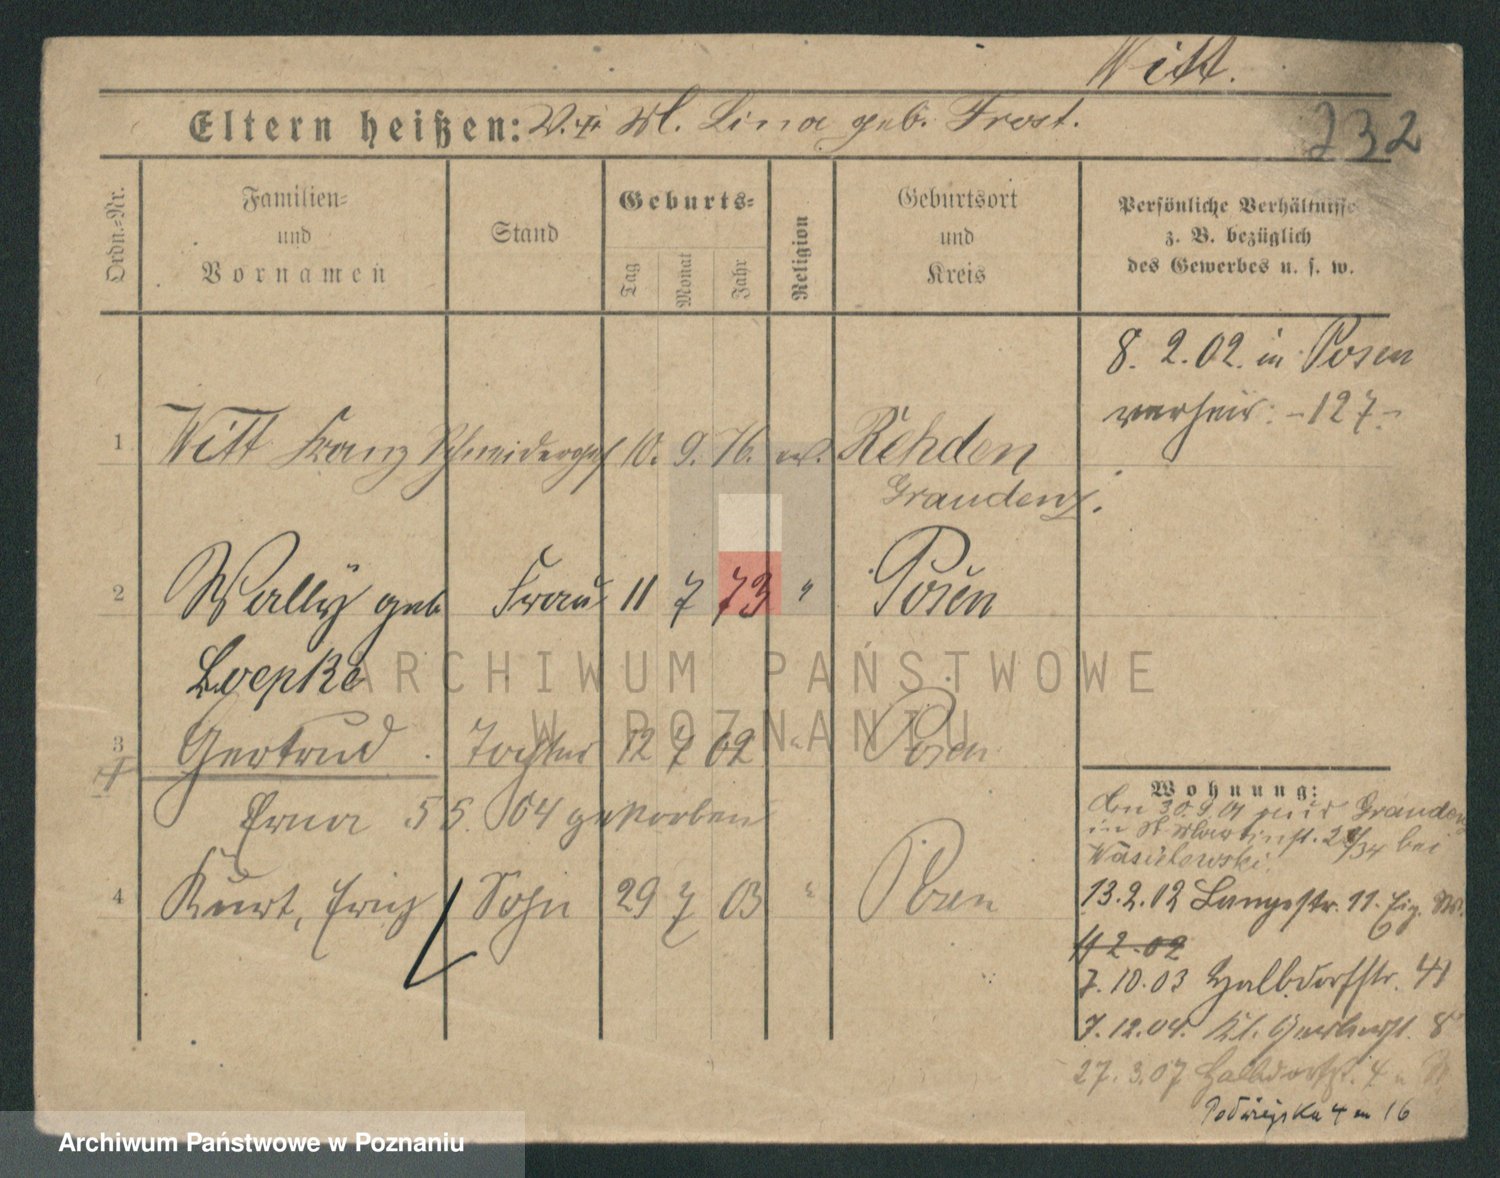 Witt.
Eltern heißen: V. Lina geb. Frost.
232
Ordn.-Nr.
Familien-
und
Vornamen
Stand
Geburts-
Tag
Monat
Jahr
Religion
Geburtsort
und
Kreis
Persönliche Verhältnisse
z. B. bezüglich
des Gewerbes u. s. w.
8. 2. 02. in Posen
verheir. -127-
1 Witt Franz Schneiderges 10. 9. 76. ev. Rehden
Graudenz.
2 Wally geb Frau 11 7 73 " Posen
Loepke
3 Gertrud Tochter 12 7 02 " Posen
Erna 5 5. 04 gestorben
4 Kurt, Fritz Sohn 29 7 03 " Posen
Wohnung:
30.9.01 Graudenz
in St Martinstr. 28/34 bei
Wasielewski
13.2.02 Langestr. 11.
11 2.02
7.10.03 Halbdorfstr. 41
7.12.04. Kl. Gerberst. 8
27.3.07 Halbdorfstr. 4
4 m 16
ARCHIWUM PAŃSTWOWE
W POZNANIU
Archiwum Państwowe w Poznaniu